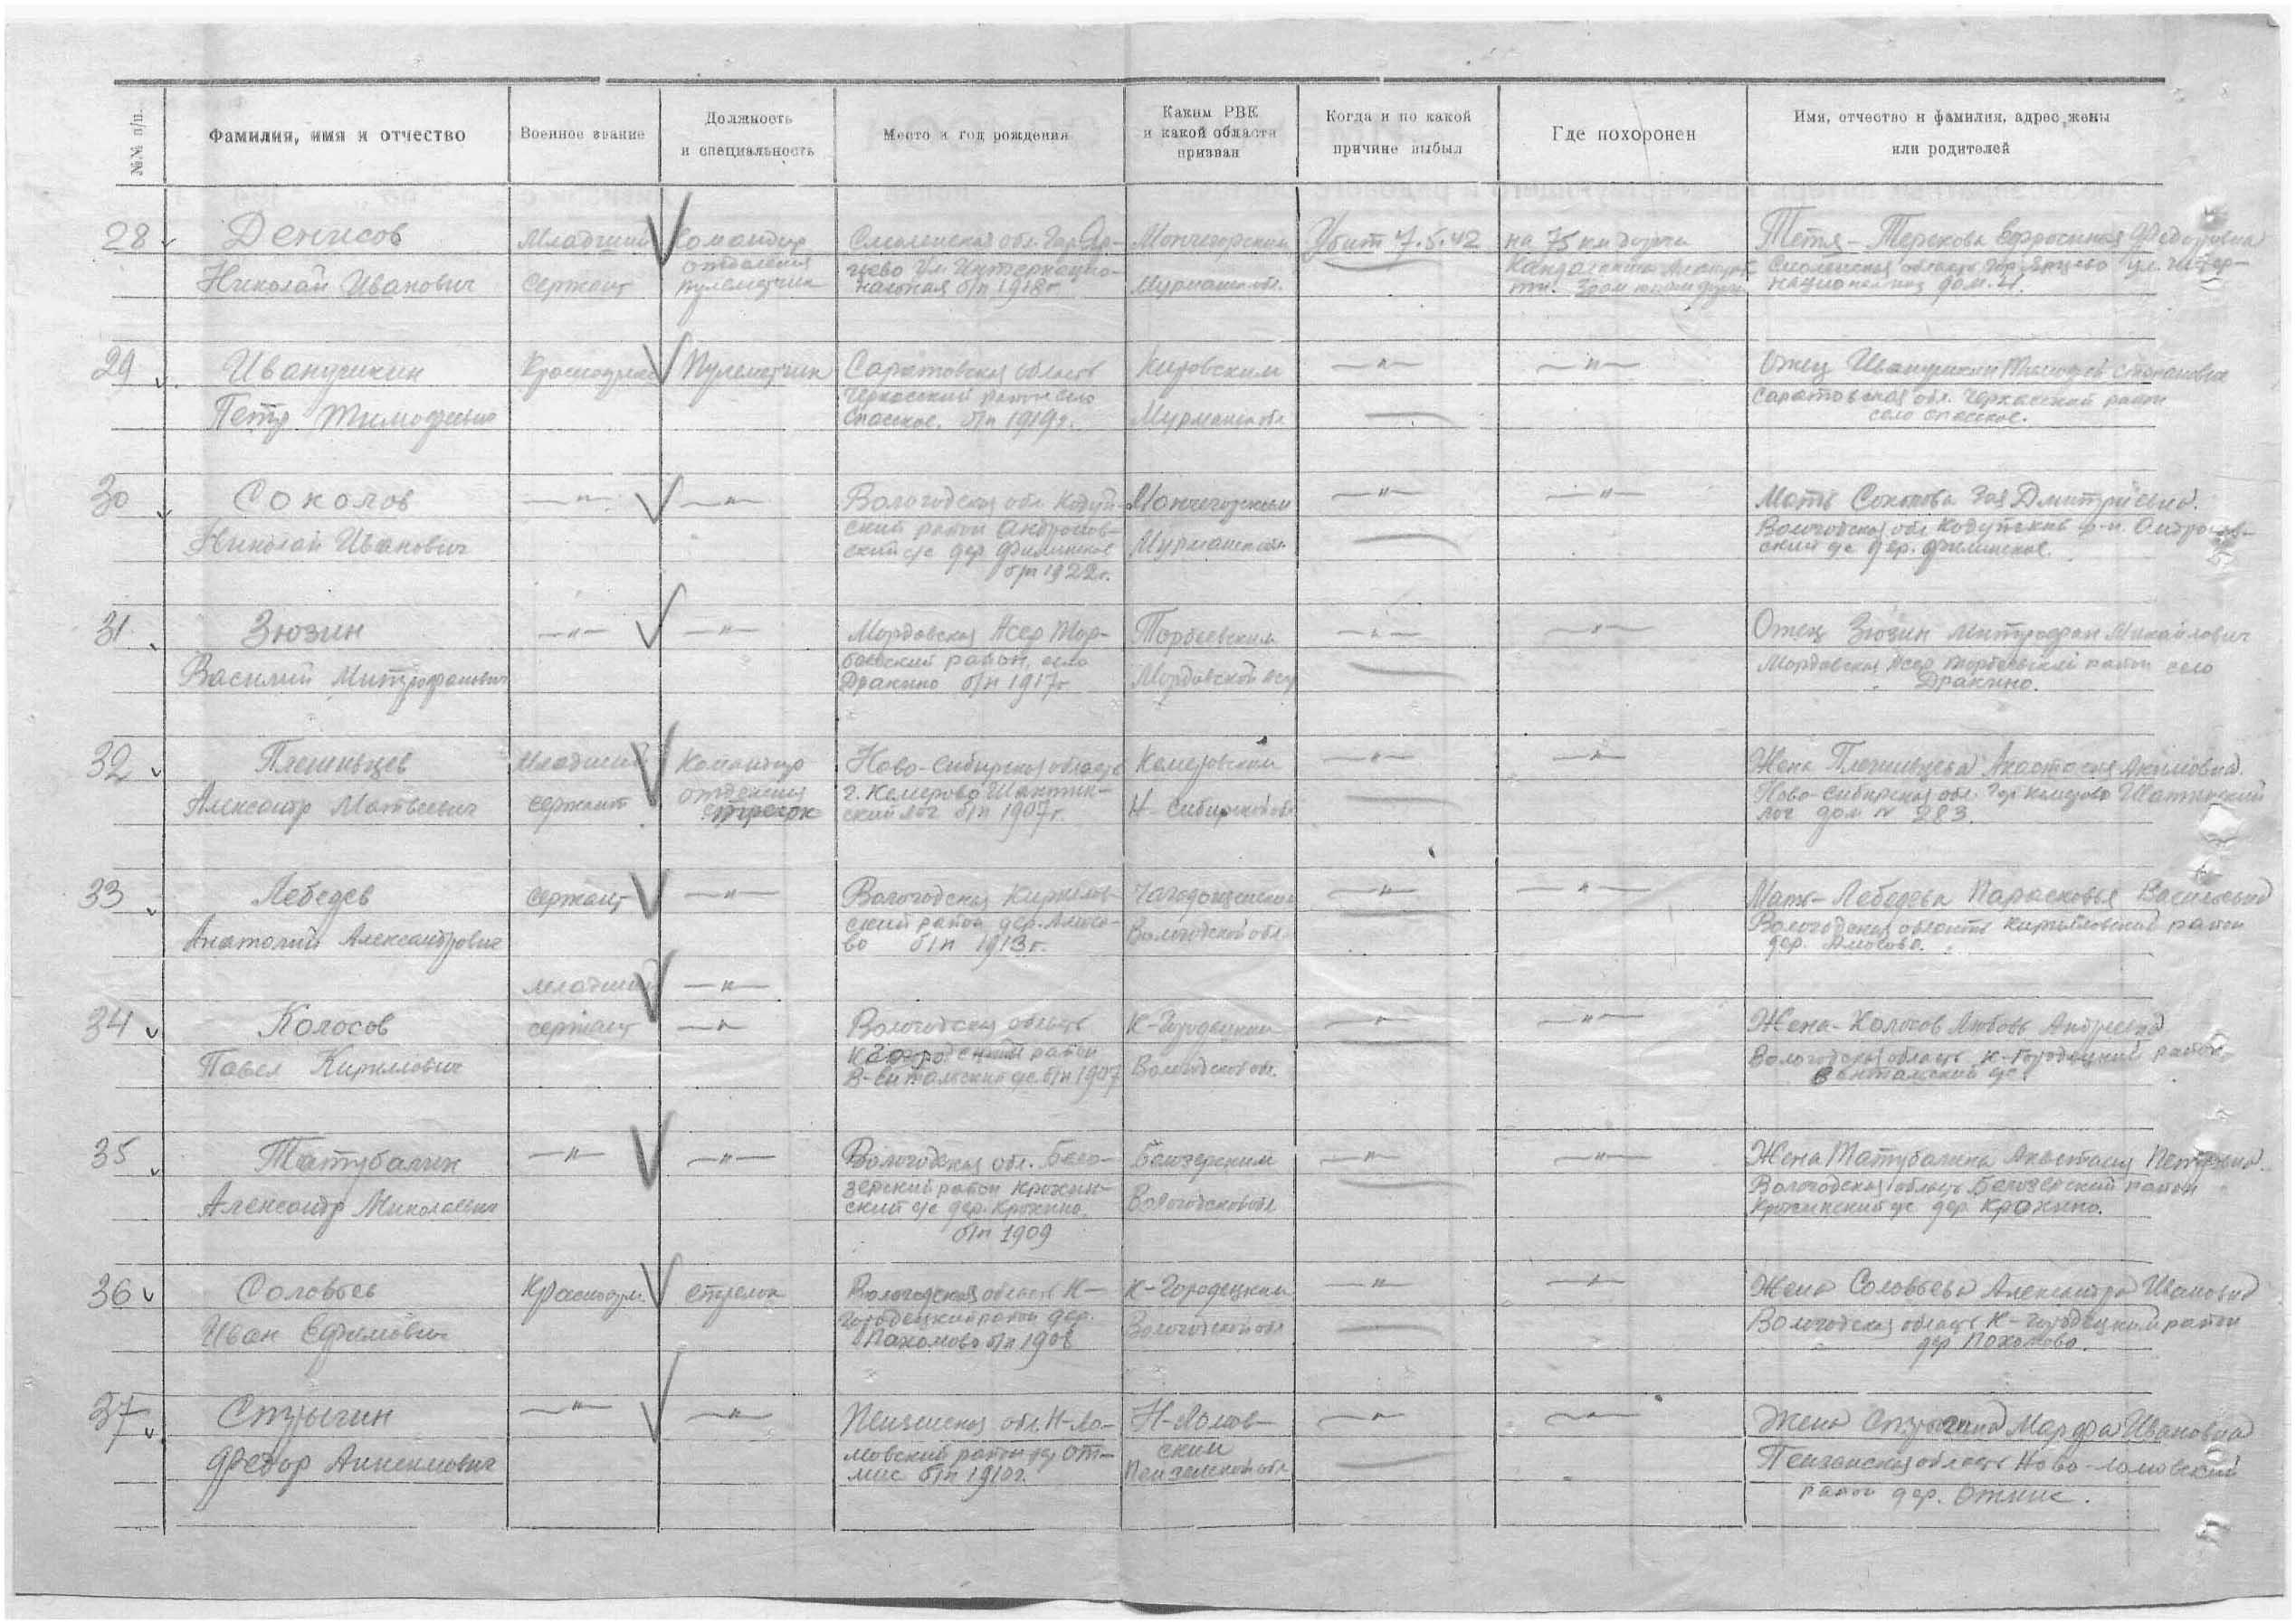 №№ п/п.
Фамилия, имя и отчество
Военное звание
Должность
и специальность
Место и год рождения
Каким РВК
и какой области
призван
Когда и по какой
причине выбыл
Где похоронен
Имя, отчество и фамилия, адрес жены
или родителей
28
Денисов
Николай Иванович
Младший
Сержант
Командир
отделения
пулеметчик
Смоленская обл. Гор. Яр-
цево Ул. Интернацио-
нальная б/п 1918г
Мончегорским
Мурманск обл.
Убит 7.5.42
на 75 км дороги
Тетя - Терехова Ефросиния Федоровна
Смоленская область гор. Ярцево ул. Интер-
национальная дом. 4.
29
Иванушкин
Петр Тимофеевич
Красноарм
Пулеметчик
Саратовская область
Черкасский район село
Спасское. б/п 1919г.
Кировским
Мурманск обл
—"—
—"—
Отец Иванушкин Тимофей Степанович
Саратовская обл. Черкасский район
село Спасское.
30
Соколов
Николай Иванович
—"—
—"—
Вологодская обл. Кадуй-
ский район Андронов-
ский с/с дер. Филинское
б/п 1922г.
Мончегорским
Мурманск обл
—"—
—"—
Мать Соколова Зоя Дмитриевна.
Вологодская обл Кадуйский р-н. Андронов-
ский с/с дер. Филинское.
31
Зюзин
Василий Митрофанович
—"—
—"—
Мордовская Асср Тор-
беевский район, село
Дракино б/п 1917г
Торбеевским
Мордовской Асср
—"—
—"—
Отец Зюзин Митрофан Михайлович
Мордовская Асср Торбеевский район село
Дракино.
32
Плешивцев
Александр Матвеевич
Младший
сержант
Командир
отделения
стрелок
Ново-Сибирская область
г. Кемерово Шахтин-
ский лог б/п 1907г.
Кемеровским
Н-Сибирской обл
—"—
—"—
Жена Плешивцева Анастасия Акимовна.
Ново-Сибирская обл. Гор Кемерово Шахтинский
лог дом № 283.
33
Лебедев
Анатолий Александрович
сержант
—"—
Вологодская Кирилов-
ский район дер. Амосо-
во б/п 1913г.
Чагодощенским
Вологодской обл.
—"—
—"—
Мать - Лебедева Парасковья Васильевна
Вологодская область Кирилловский район
дер. Амосово.
34
Колосов
Павел Кирилович
младший
сержант
—"—
—"—
Вологодская область
К Городецкий район
б/п 1907
К-Городецким
Вологодской обл.
—"—
—"—
Жена - Колосов Любовь Андреевна
Вологодская область К-Городецкий район,
35
Татубалин
Александр Николаевич
—"—
—"—
Вологодская обл. Бело-
зерский район Крохин-
ский с/с дер. Крохино.
б/п 1909
Белозерским
Вологодской обл
—"—
—"—
Жена Татубалина Анастасия Петровна.
Вологодская область Белозерский район
Крохинский с/с дер. Крохино.
36
Соловьев
Иван Ефимович
Красноарм.
стрелок
Вологодская область К-
Городецкий район дер.
Пахомово б/п 1908
К-Городецким
Вологодской обл
—"—
—"—
Жена Соловьева Александра Ивановна
Вологодская область К-Городецкий район
дер Похомово.
37
Стрыгин
Федор Анисимович
—"—
—"—
Пензенская обл. Н-Ло-
мовский район дер От-
мис б/п 1910г.
Н-Ломов-
ским
Пензенской обл
—"—
—"—
Жена Стрыгина Марфа Ивановна
Пензенская область Ново-Ломовский
район дер. Отмис.